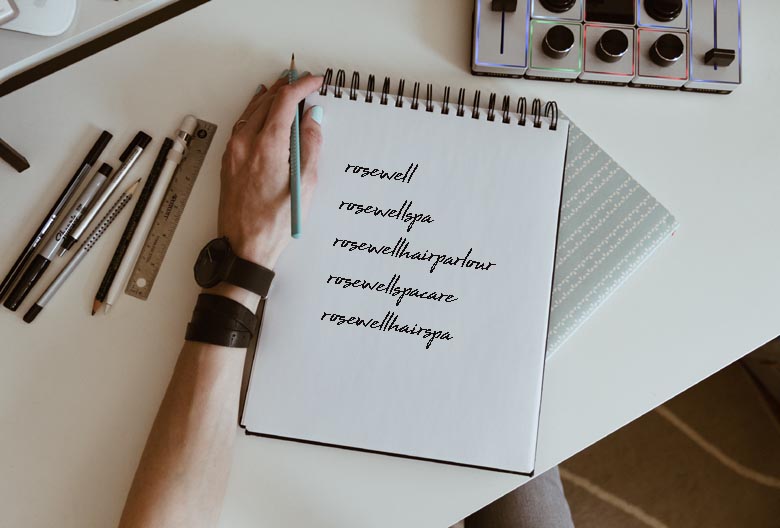 rosewell
rosewellspa
rosewellhairparlour
rosewellspacare
rosewellhairspa